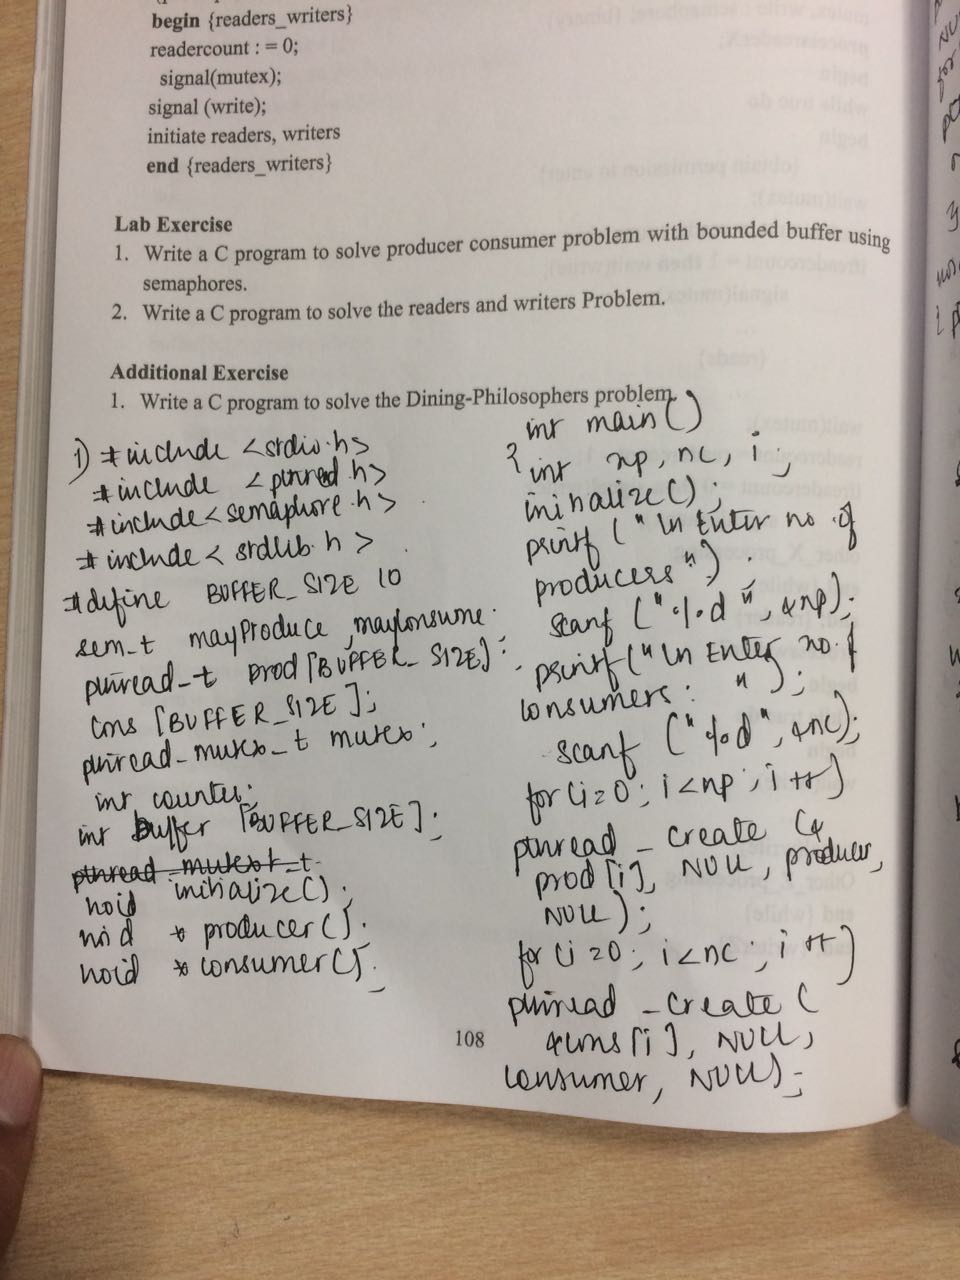 begin {readers_writers}
readercount : = 0;
signal(mutex);
signal (write);
initiate readers, writers
end {readers_writers}
Lab Exercise
1. Write a C program to solve producer consumer problem with bounded buffer using
semaphores.
2. Write a C program to solve the readers and writers Problem.
Additional Exercise
1. Write a C program to solve the Dining-Philosophers problem.
1) #include <stdio.h>
#include <pthread.h>
#include <semaphore.h>
#include < stdlib.h >
#define BUFFER_SIZE 10
sem_t mayProduce, mayConsume;
pthread_t prod [BUFFER_SIZE];
cons [BUFFER_SIZE];
pthread_mutex_t mutex;
int counter;
int buffer [BUFFER_SIZE];
void initialize();
void * producer();
void * consumer();
int main()
{ int np, nc, i;
initialize();
printf ("\n Enter no. of
producers");
scanf ("%d", &np);
printf ("\n Enter no. of
consumers: ");
scanf ("%d", &nc);
for (i=0; i<np; i++)
pthread_create (&
prod[i], NULL, producer,
NULL);
for (i=0; i<nc; i++)
pthread_create (
&cons[i], NULL,
consumer, NULL);
108